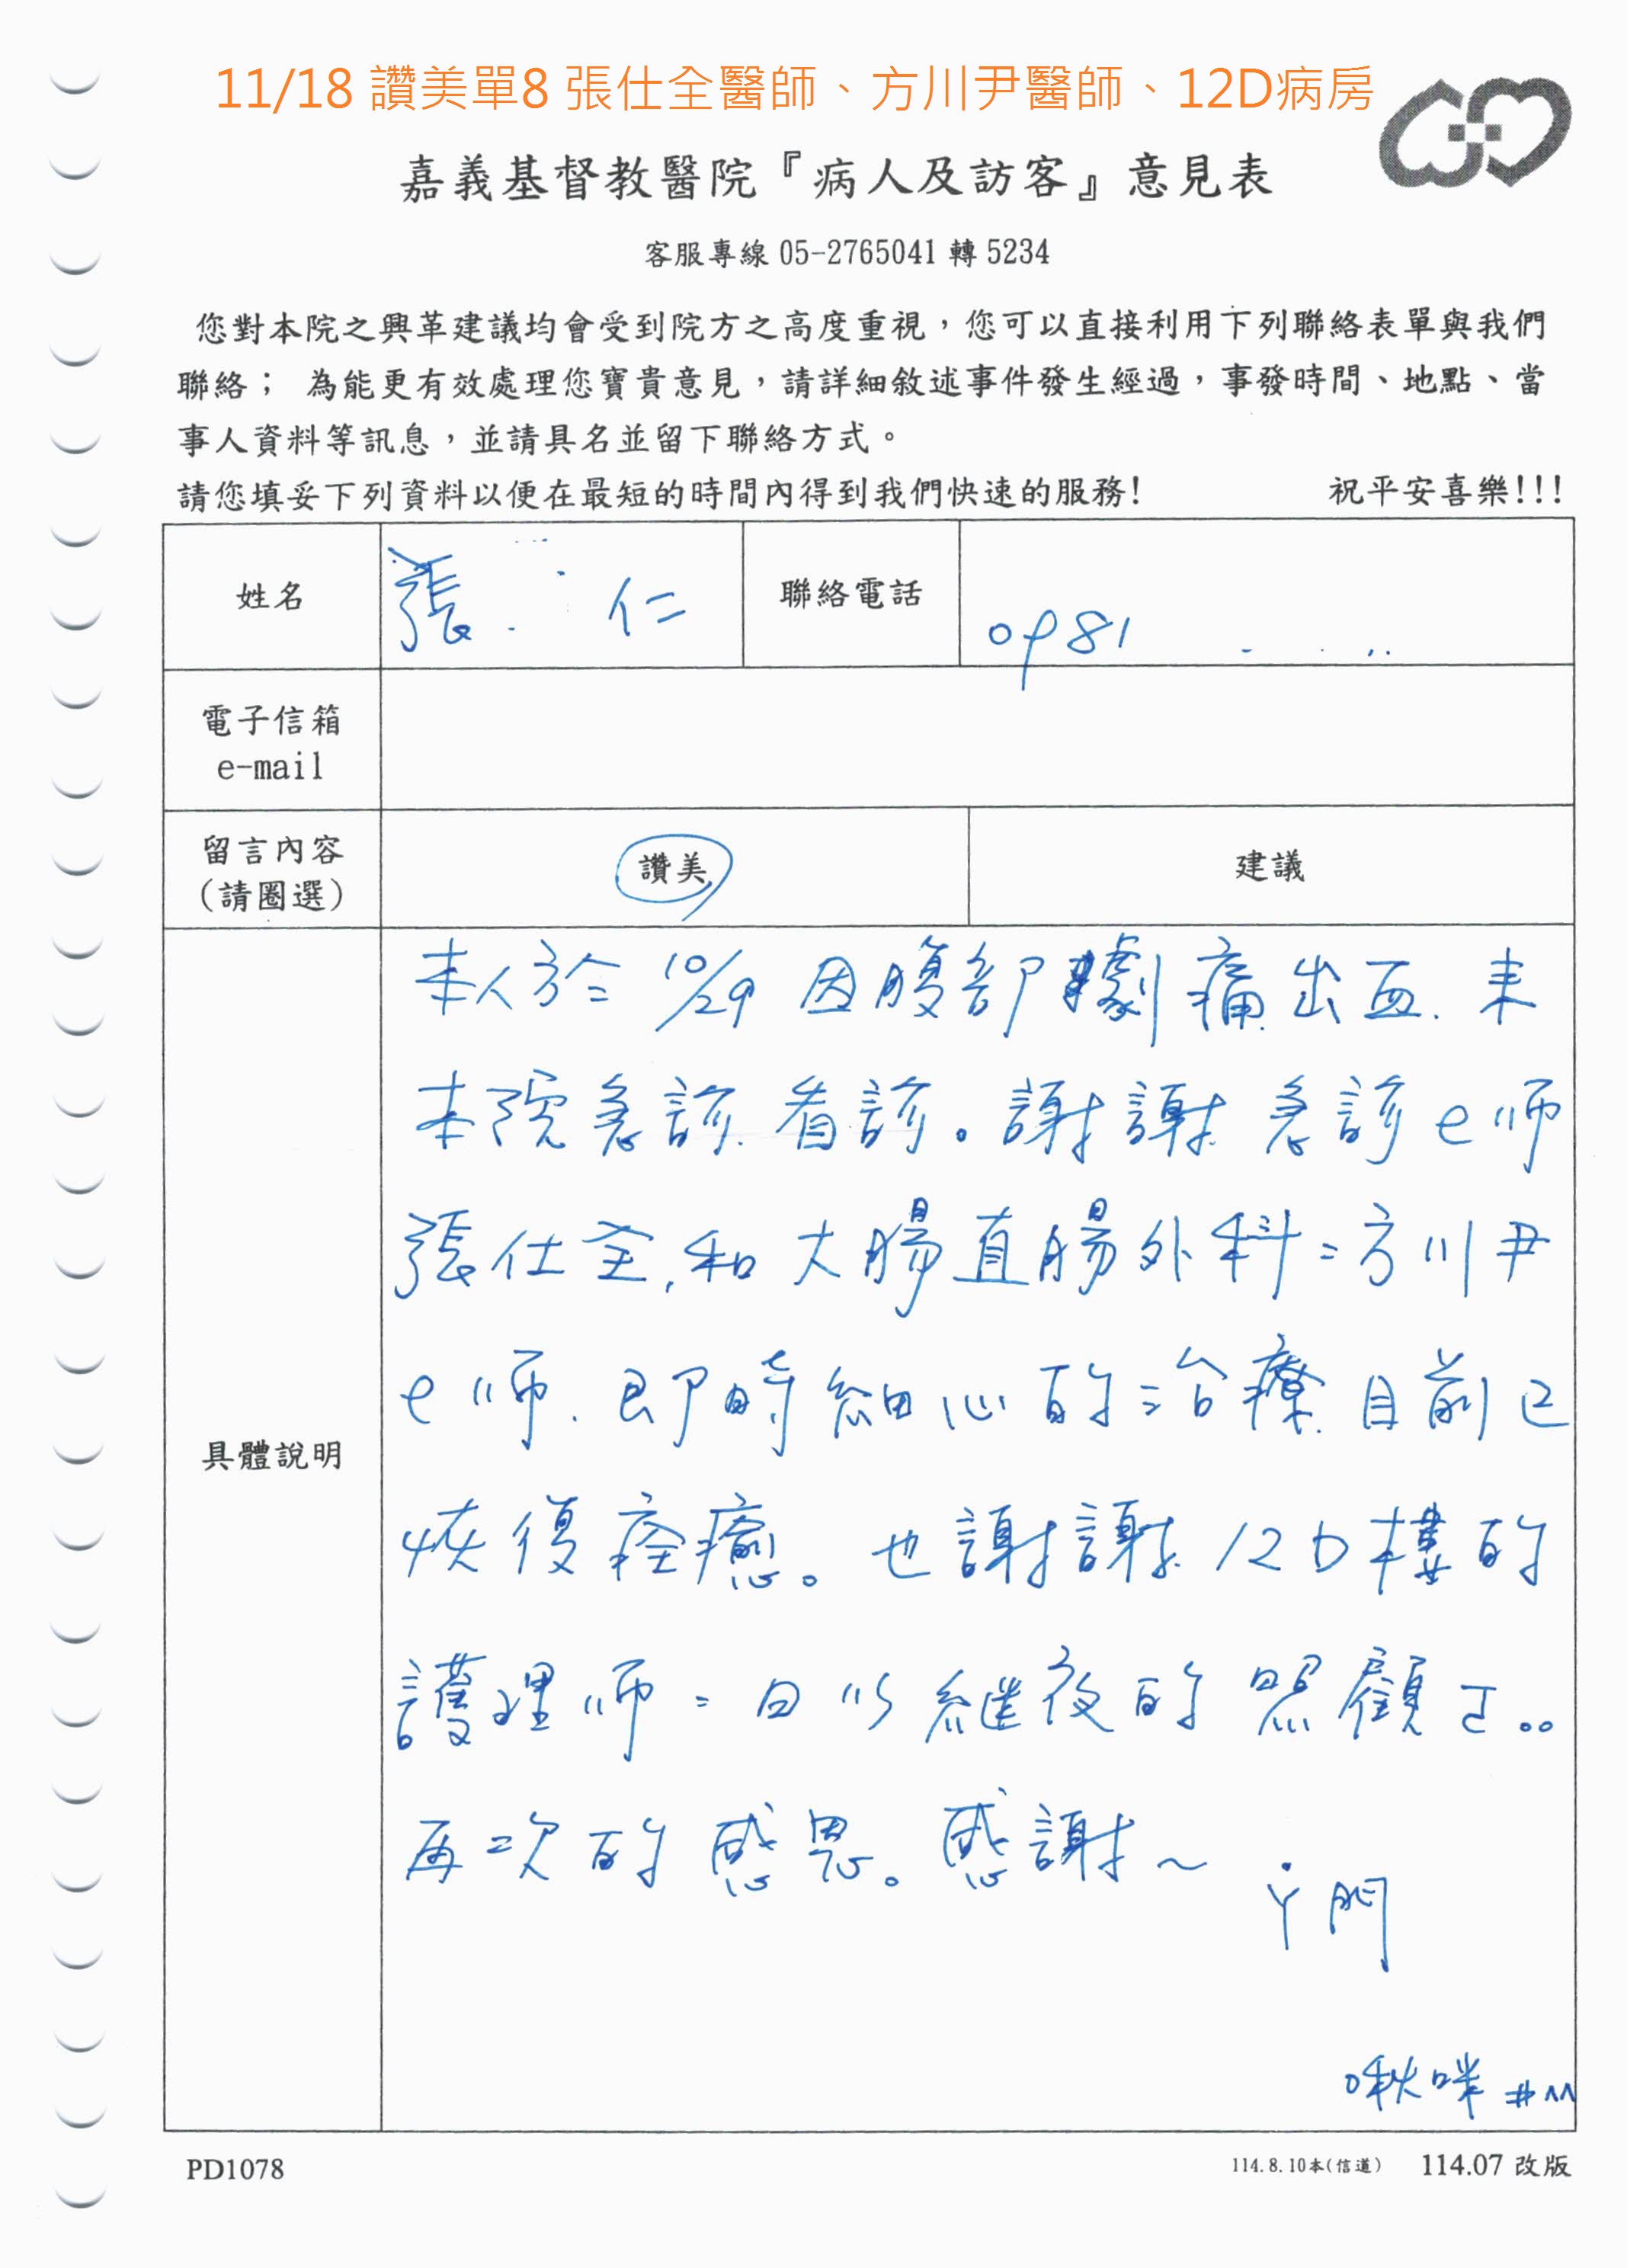 11/18 讚美單8 張仕全醫師、方川尹醫師、12D病房
嘉義基督教醫院『病人及訪客』意見表
客服專線 05-2765041 轉 5234
您對本院之興革建議均會受到院方之高度重視，您可以直接利用下列聯絡表單與我們
聯絡； 為能更有效處理您寶貴意見，請詳細敘述事件發生經過，事發時間、地點、當
事人資料等訊息，並請具名並留下聯絡方式。
請您填妥下列資料以便在最短的時間內得到我們快速的服務! 祝平安喜樂!!!
姓名 張 仁 聯絡電話 0981
電子信箱
e-mail
留言內容
(請圈選)
讚美 建議
具體說明
本人於 10/29 因腹部劇痛出血. 来
本院急診.看診。謝謝急診e师
張仕全,和大腸直腸外科=方川尹
e师.即時細心的治療.目前已
恢復痊癒。也謝謝12D樓的
護理师=日以継夜的照顧
再次的感恩。感謝~
啾咪 #^^
PD1078 114.8.10本(信道) 114.07 改版